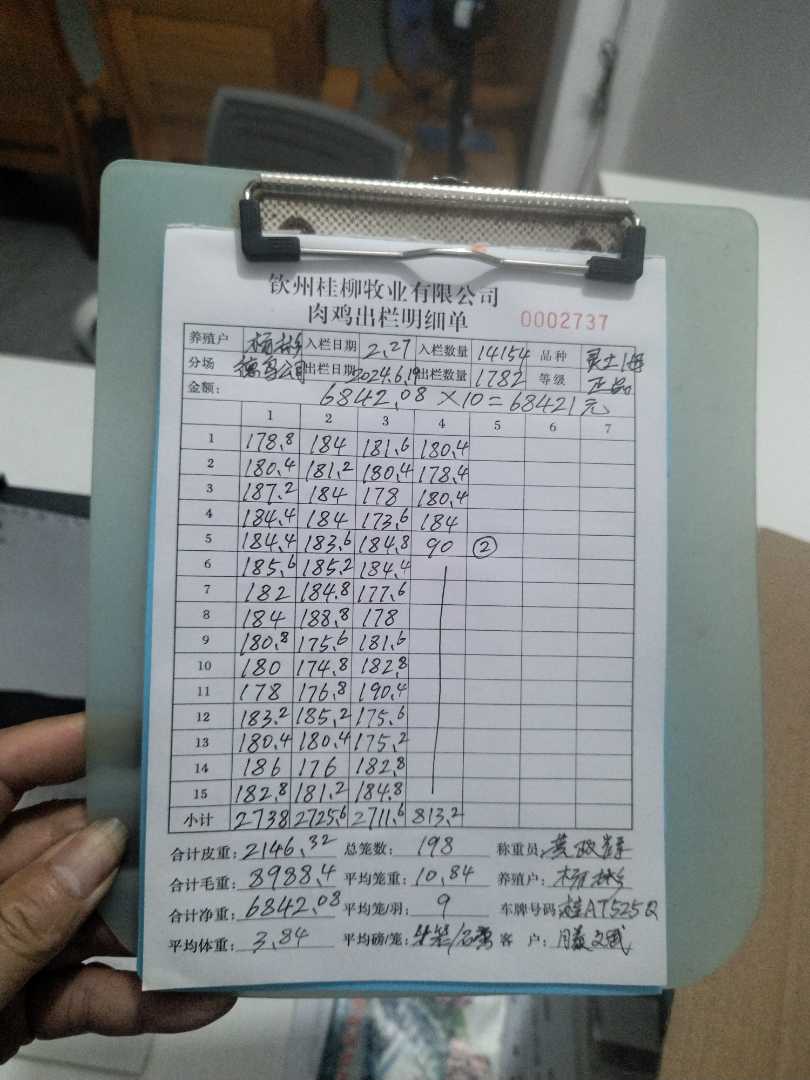 钦州桂柳牧业有限公司
肉鸡出栏明细单 0002737
养殖户 杨彬 入栏日期 2.27 入栏数量 14154 品种 灵土1号
分场 德安公司 出栏日期 2024.6.19 出栏数量 1782 等级 正品
金额: 6842.08×10=68421元
1 2 3 4 5 6 7
1 178.8 184 181.6 180.4
2 180.4 181.2 180.4 178.4
3 187.2 184 178 180.4
4 184.4 184 173.6 184
5 184.4 183.6 184.8 90 ②
6 185.6 185.2 184.4
7 182 184.8 177.6
8 184 188.8 178
9 180.8 175.6 181.6
10 180 174.8 182.8
11 178 176.8 190.4
12 183.2 185.2 175.6
13 180.4 180.4 175.2
14 186 176 182.8
15 182.8 181.2 184.8
小计 2738 2725.6 2711.6 813.2
合计皮重: 2146.32 总笼数: 198 称重员: 黄
合计毛重: 8988.4 平均笼重: 10.84 养殖户: 杨彬
合计净重: 6842.08 平均笼/羽: 9 车牌号码 桂AT525Q
平均体重: 3.84 平均磅/笼: 客 户: